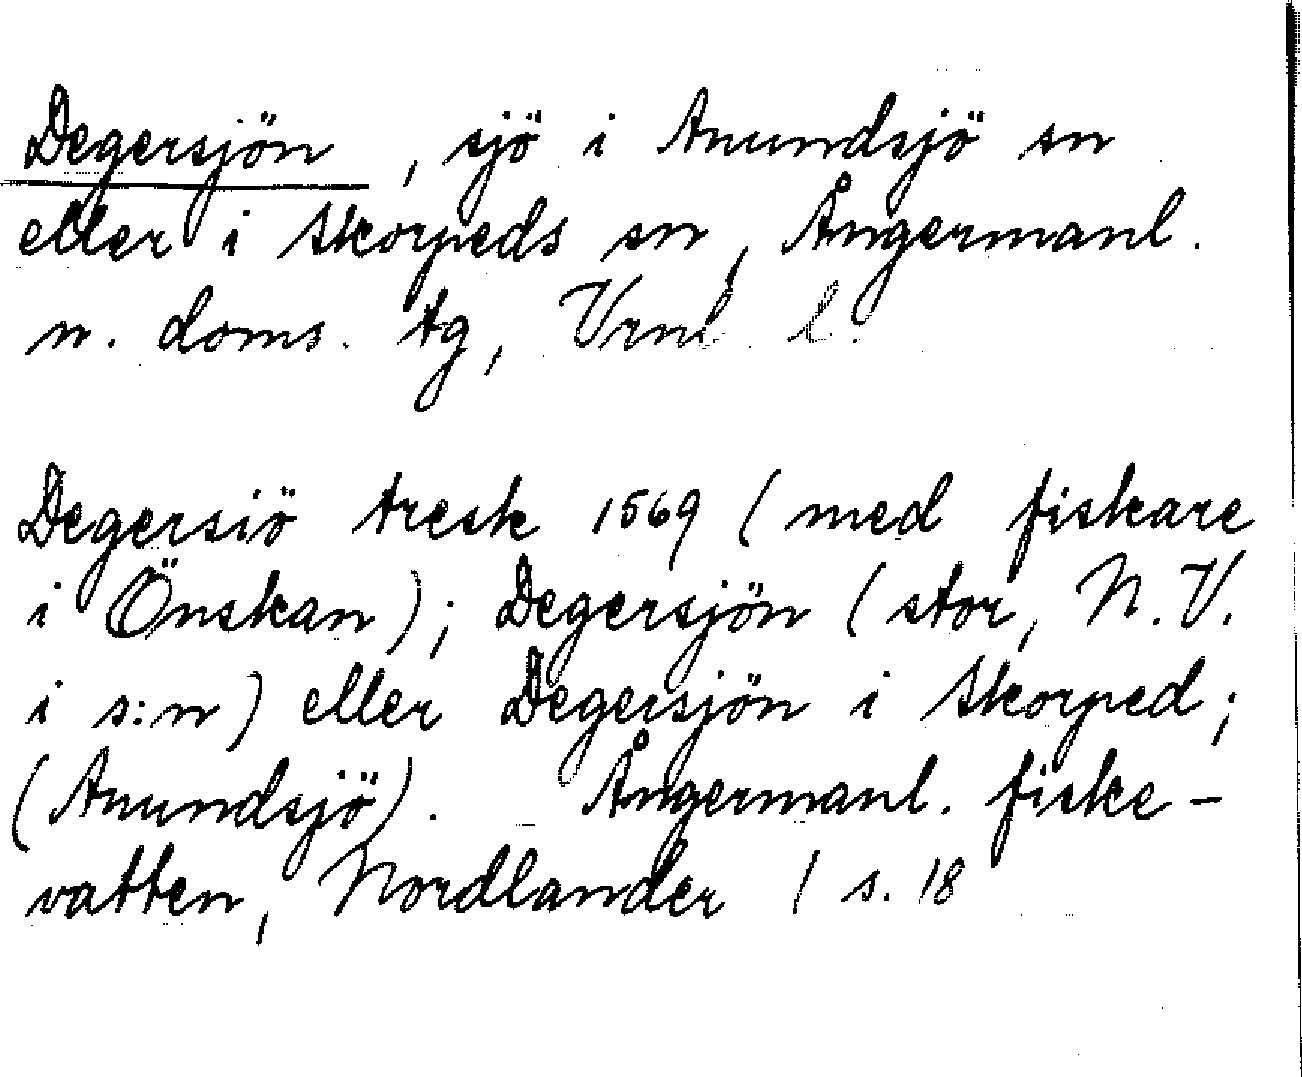 Degersjön, sjö i Anundsjö sn
eller i Skorpeds sn, Ångermanl.
n. doms. tg, Vrnl. l.
Degersiö tresk 1569 (med fiskare
i Önskan); Degersjön (stor, N.V.
i s:n) eller Degersjön i Skorped;
(Anundsjö). Ångermanl. fiske-
vatten, Nordlander 1 s. 18